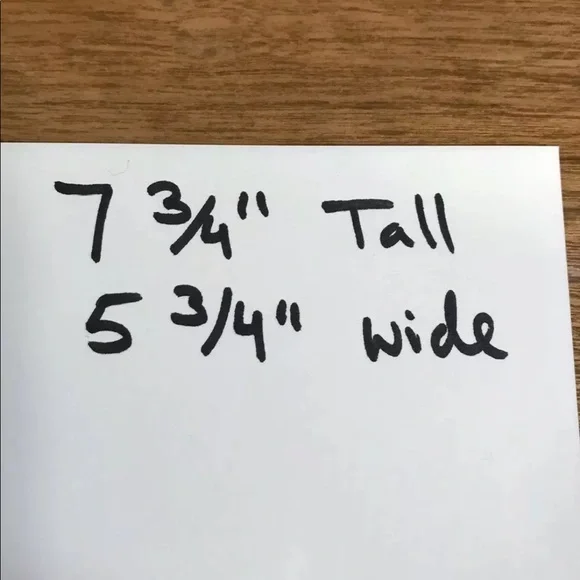 7 3/4" Tall
5 3/4" wide